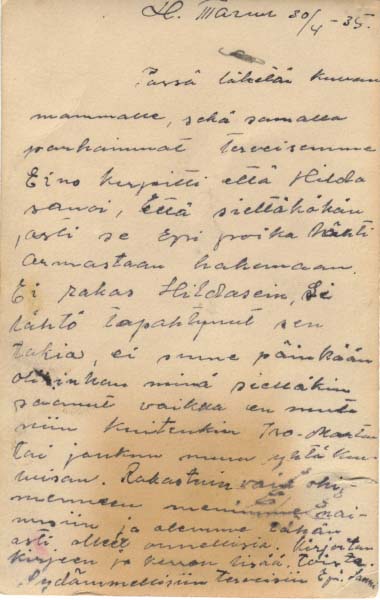 30/4 -35.
Tässä lähetän kuvan
mammalle, sekä samalla
parhaimmat terveisemme
Eino kirjoitti että Hilda
sanoi, Että sieltäkökän
asti se Epi poika lähti
armastaan hakemaan.
Ei rakas Hildasein, Se
lähtö tapahtunut sen
takia, ei sinne päinkään
olisinhan minä sieltäkin
saanut vaikka en muuta
niin kuitenkin Iso-
tai jonkun muun yhtä
Rakastuin vain ohi
mennen menimme
ja olemme tähän
asti olleet onnellisia. Kirjoitan
kirjeen ja kerron lisää, toiste.
Sydämmellisin terveisin Epi.